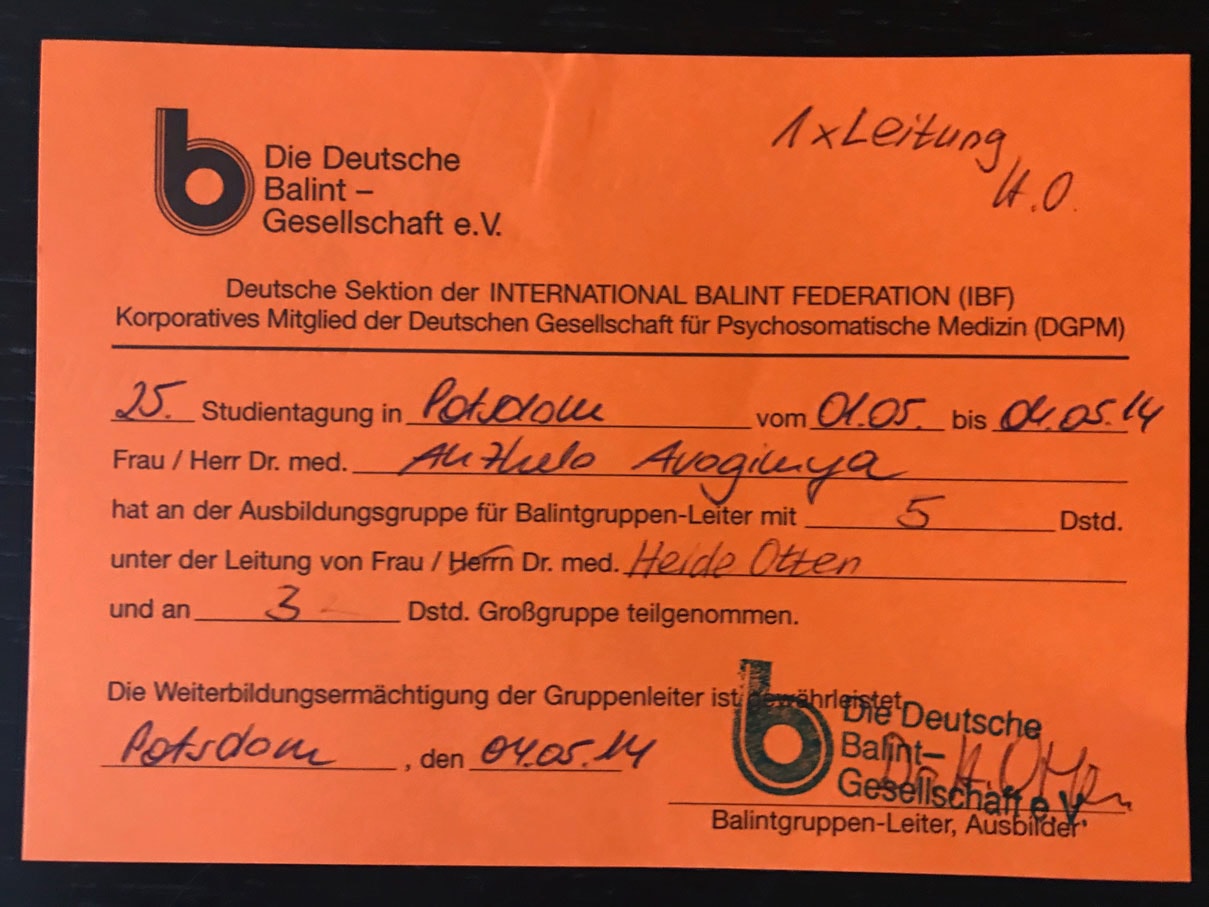 Die Deutsche
Balint –
Gesellschaft e.V.
1 x Leitung
H.O.
Deutsche Sektion der INTERNATIONAL BALINT FEDERATION (IBF)
Korporatives Mitglied der Deutschen Gesellschaft für Psychosomatische Medizin (DGPM)
25. Studientagung in Potsdam vom 01.05. bis 04.05.14
Frau / Herr Dr. med.
hat an der Ausbildungsgruppe für Balintgruppen-Leiter mit 5 Dstd.
unter der Leitung von Frau / Herrn Dr. med. Heide Otten
und an 3 Dstd. Großgruppe teilgenommen.
Die Weiterbildungsermächtigung der Gruppenleiter ist gewährleistet
Potsdam, den 04.05.14
Die Deutsche
Balint–
Gesellschaft e.V.
Dr. H. Otten
Balintgruppen-Leiter, Ausbilder